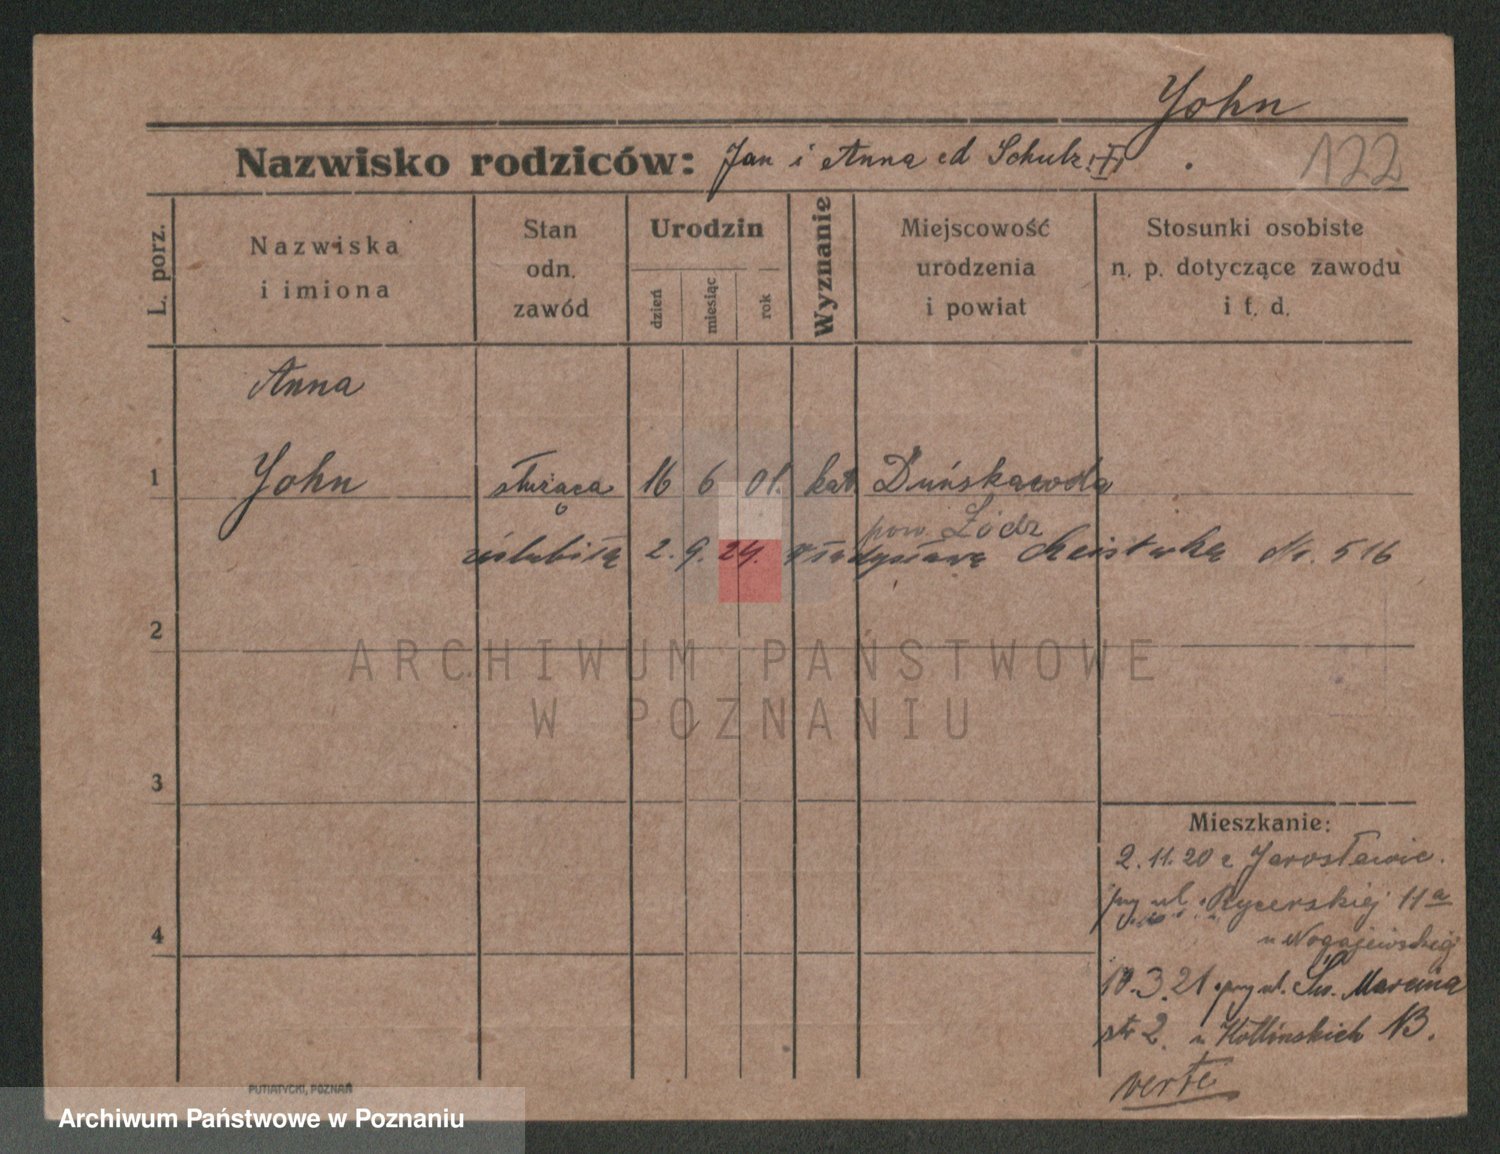 John
Nazwisko rodziców: Jan i Anna od Schulz
122
L. porz.
Nazwiska
i imiona
Stan
odn.
zawód
Urodzin
dzień
miesiąc
rok
Wyznanie
Miejscowość
urodzenia
i powiat
Stosunki osobiste
n. p. dotyczące zawodu
i t. d.
Anna
1 John służąca 16 6 01. kat. Duńskawola
pow. Łódz
uślubiła 2. 9. 24. No. 516
2
ARCHIWUM PAŃSTWOWE
W POZNANIU
3
Mieszkanie:
2.11.20 z Jarosławic.
przy ul. Rycerskiej 11a
4
u Nogajewskiej
10.3.21 przy ul. Św. Marcina
str 2. u Kotlinskich
verte
PUTIATYCKI, POZNAŃ
Archiwum Państwowe w Poznaniu